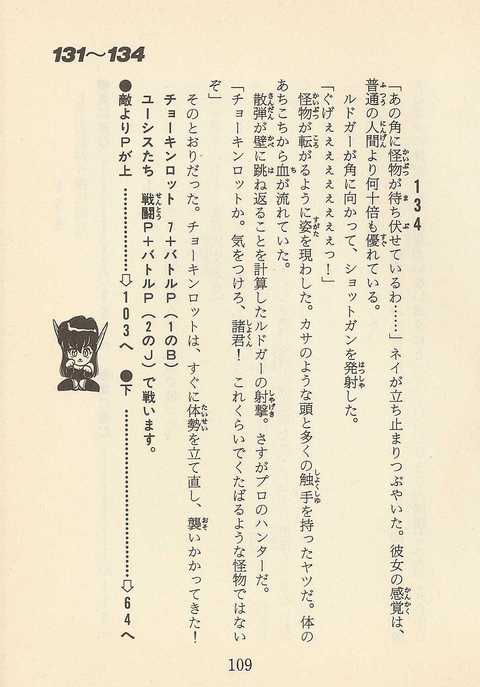 131〜134
134
「あの角に怪物が待ち伏せているわ……」ネイが立ち止まりつぶやいた。彼女の感覚は、
普通の人間より何十倍も優れている。
ルドガーが角に向かって、ショットガンを発射した。
「ぐげぇぇぇぇぇぇぇぇっ！」
怪物が転がるように姿を現わした。カサのような頭と多くの触手を持ったヤツだ。体の
あちこちから血が流れていた。
散弾が壁に跳ね返ることを計算したルドガーの射撃。さすがプロのハンターだ。
「チョーキンロットか。気をつけろ、諸君！　これくらいでくたばるような怪物ではない
ぞ」
そのとおりだった。チョーキンロットは、すぐに体勢を立て直し、襲いかかってきた！
チョーキンロット　7＋バトルP（1のB）
ユーシスたち　戦闘P＋バトルP（2のJ）で戦います。
●敵よりPが上…………⇨103へ　●下…………………⇨64へ
109